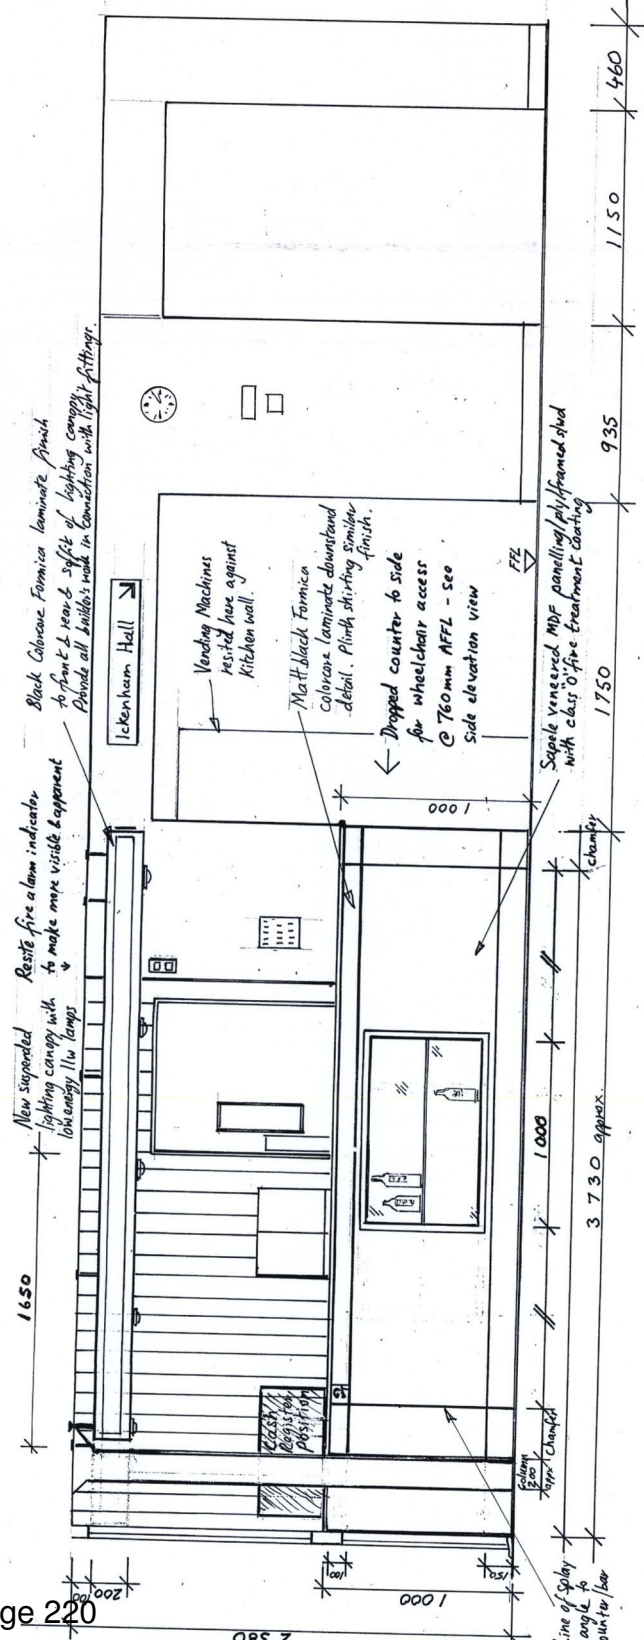 New suspended
lighting canopy with
low energy 11w lamps
Resite fire alarm indicator
to make more visible & apparent
Black Colorcore Formica laminate finish
to front & rear & soffit of lighting canopy.
Provide all builder's work in connection with light fittings.
1650
Ickenham Hall
Vending Machines
resited here against
Kitchen wall.
Matt black Formica
colorcore laminate downstand
detail. Plinth skirting similar
finish.
Dropped counter to side
for wheelchair access
@ 760mm AFFL - see
side elevation view
FFL
1000
Cash
Register
position
Sapele veneered MDF panelling/ply/framed stud
with class "0" fire treatment coating
Column
200
appx
Chamfer
1000
chamfer
3730 approx.
1750
935
1150
460
100
200
2380
1000
100
150
line of Splay
angle to
counter/bar
ge 220